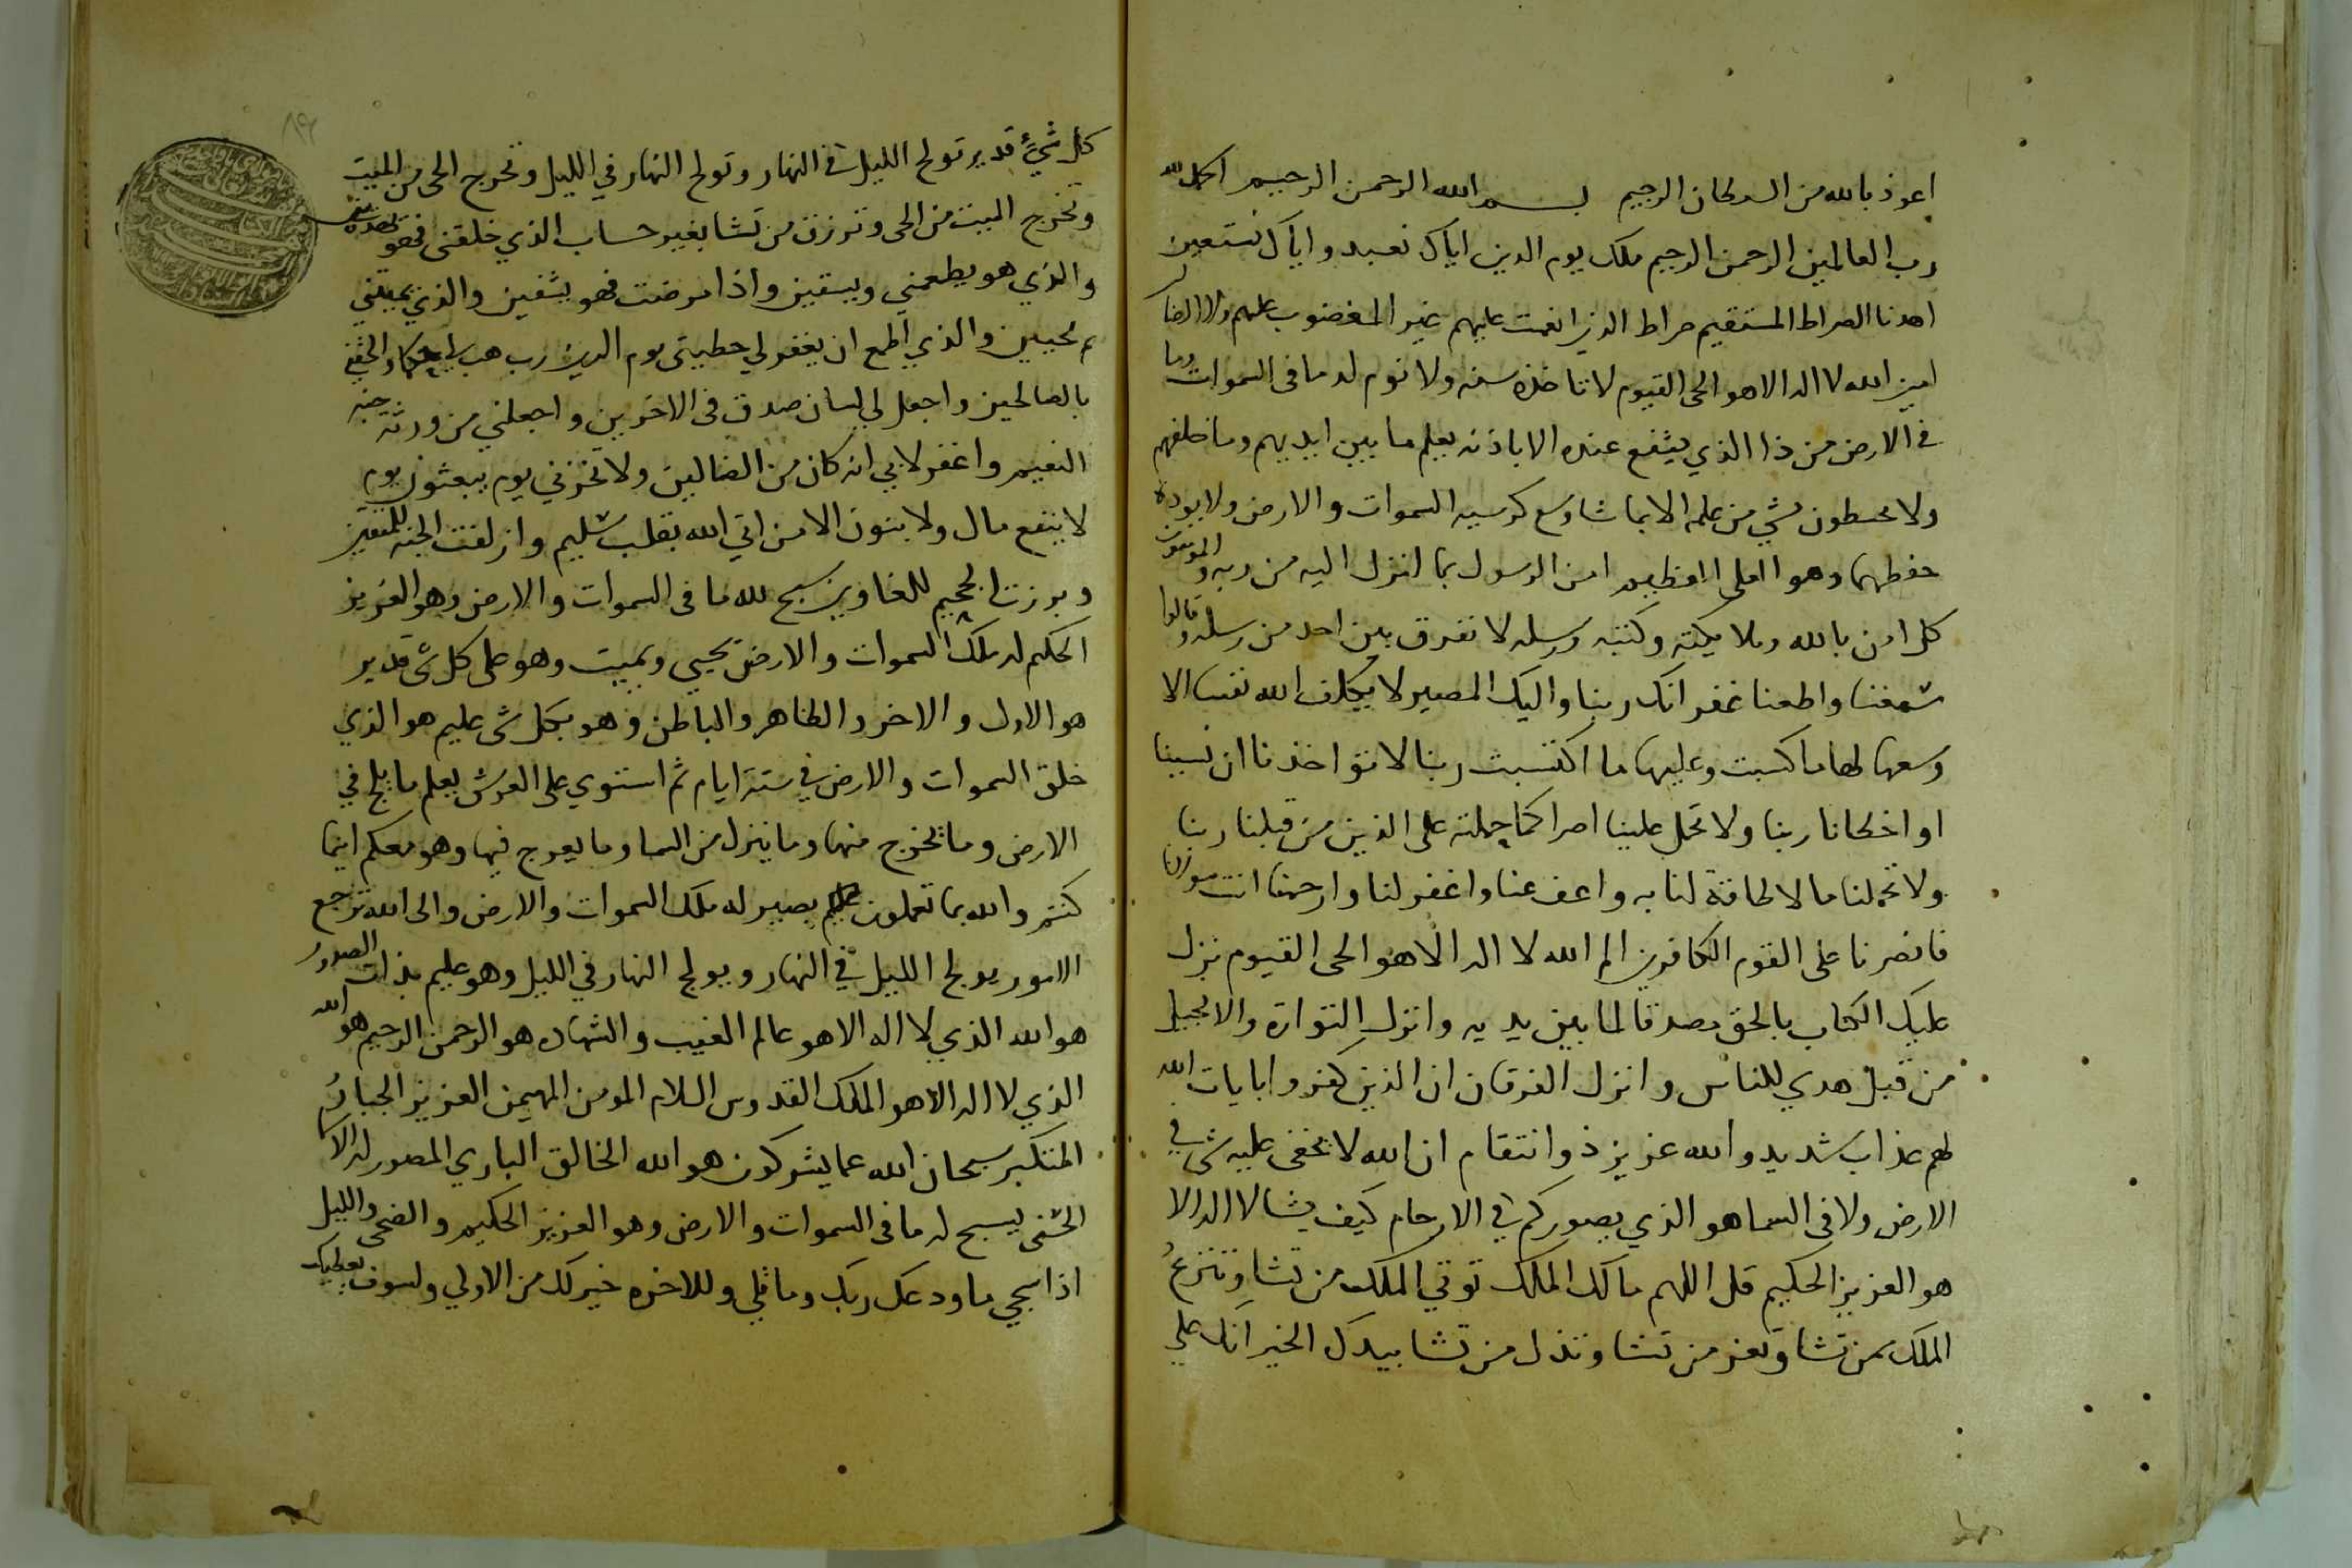 اعوذ بالله من الشيطان الرجيم بسم الله الرحمن الرحيم الحمد لله
رب العالمين الرحمن الرحيم ملك يوم الدين اياك نعبد واياك نستعين
اهدنا الصراط المستقيم صراط الذين انعمت عليهم غير المغضوب عليهم ولا الضالين
امين الله لا اله الا هو الحى القيوم لا تاخذه سنه ولا نوم له ما فى السموات وما
في الارض من ذا الذي يشفع عنده الا باذنه يعلم ما بين ايديهم وما خلفهم
ولا يحيطون بشي من علمه الا بما شا وسع كرسيه السموات والارض ولا يوده
حفظهما وهو العلى العظيم امن الرسول بما انزل اليه من ربه والمومنون
كل امن بالله وملايكته وكتبه ورسله لا نفرق بين احد من رسله وقالوا
سمعنا واطعنا غفرانك ربنا واليك المصير لا يكلف الله نفسا الا
وسعها لها ما كسبت وعليها ما اكتسبت ربنا لا تواخذنا ان نسينا
او اخطانا ربنا ولا تحمل علينا اصرا كما حملته على الذين من قبلنا ربنا
ولا تحملنا ما لا طاقة لنا به واعف عنا واغفر لنا وارحمنا انت مولانا
فانصرنا على القوم الكافرين الم الله لا اله الا هو الحى القيوم نزل
عليك الكتاب بالحق مصدقا لما بين يديه وانزل التوراة والانجيل
من قبل هدي للناس وانزل الفرقان ان الذين كفروا بايات الله
لهم عذاب شديد والله عزيز ذو انتقام ان الله لا يخفى عليه شى في
الارض ولا فى السما هو الذي يصوركم في الارحام كيف يشا لا اله الا
هو العزيز الحكيم قل اللهم مالك الملك توتي الملك من تشا وتنزع
الملك ممن تشا وتعز من تشا وتذل من تشا بيدك الخير انك علي
كل شيء قدير تولج الليل في النهار وتولج النهار في الليل وتخرج الحى من الميت
وتخرج الميت من الحى وترزق من تشا بغير حساب الذي خلقنى فهو يهدين
والذي هو يطعمني ويسقين واذا مرضت فهو يشفين والذي يميتني
ثم يحيين والذي اطمع ان يغفر لي خطيتى يوم الدين رب هب لي حكما والحقني
بالصالحين واجعل لي لسان صدق فى الاخرين واجعلني من ورثة جنه
النعيم واغفر لابي انه كان من الضالين ولا تخزني يوم يبعثون يوم
لا ينفع مال ولا بنون الا من اتي الله بقلب سليم وازلفت الجنه للمتقين
وبرزت الجحيم للغاوين سبح لله ما فى السموات والارض وهو العزيز
الحكيم له ملك السموات والارض يحيي ويميت وهو على كل شى قدير
هو الاول والاخر والظاهر والباطن وهو بكل شى عليم هو الذي
خلق السموات والارض في ستة ايام ثم استوي على العرش يعلم ما يلج في
الارض وما يخرج منها وما ينزل من السما وما يعرج فيها وهو معكم اينما
كنتم والله بما تعملون بصير له ملك السموات والارض والى الله ترجع
الامور يولج الليل في النهار ويولج النهار في الليل وهو عليم بذات الصدور
هو الله الذي لا اله الا هو عالم الغيب والشهاده هو الرحمن الرحيم هو الله
الذي لا اله الا هو الملك القدوس السلام المومن المهيمن العزيز الجبار
المتكبر سبحان الله عما يشركون هو الله الخالق الباري المصور له الاسما
الحسنى يسبح له ما فى السموات والارض وهو العزيز الحكيم والضحى والليل
اذا سجي ما ودعك ربك وما قلي وللاخره خير لك من الاولي ولسوف يعطيك